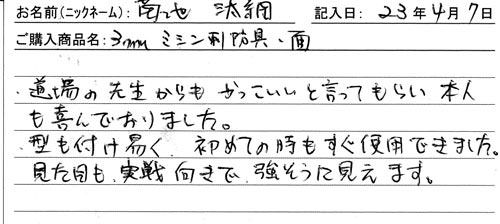 お名前(ニックネーム): 菊池 汰綱 記入日: 23年4月7日
ご購入商品名: 3mmミシン刺防具・面
・道場の先生からもかっこいいと言ってもらい本人
も喜んでおりました。
・型も付け易く、初めての時もすぐ使用できました。
見た目も、実戦向きで、強そうに見えます。